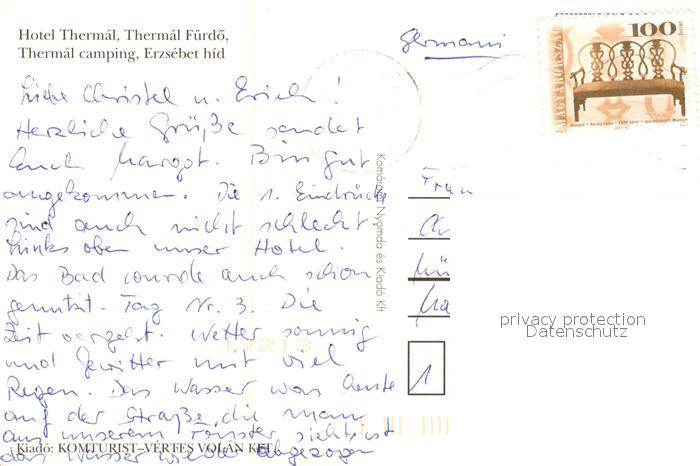 Hotel Thermál, Thermál Fürdő,
Thermál camping, Erzsébet híd
Germani
MAGYARORSZÁG 100
Liebe Christel u. Erich!
Herzliche Grüße sendet
Euch Margot. Bin gut
angekommen. Die 1. Eindrücke
sind auch nicht schlecht
Links oben unser Hotel.
Das Bad wurde auch schon
genutzt. Tag Nr. 3. Die
Zeit vergeht. Wetter sonnig
und Gewitter mit viel
Regen. Das Wasser war heute
auf der Straße, die man
aus unserem Fenster sieht, ist
das Wasser wieder abgezogen
Komáromi Nyomda és Kiadó Kft
Frau
1
privacy protection
Datenschutz
Kiadó: KOMTURIST–VÉRTES VOLÁN KFT